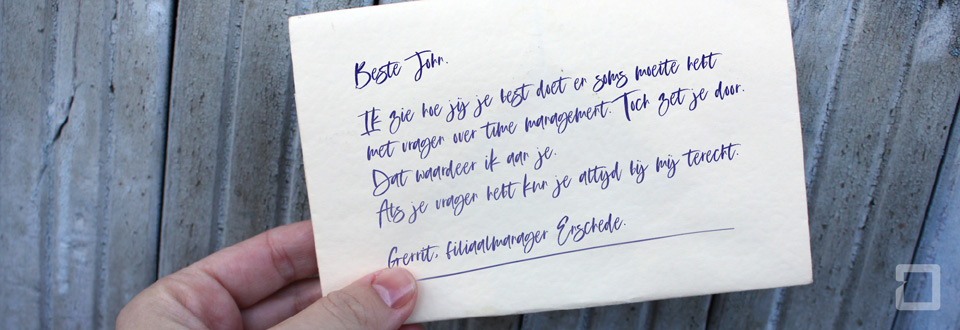 Beste John.
Ik zie hoe jij je best doet en soms moeite hebt
met vragen over time management. Toch zet je door.
Dat waardeer ik aan je.
Als je vragen hebt kun je altijd bij mij terecht.
Gerrit, filiaalmanager Enschede.